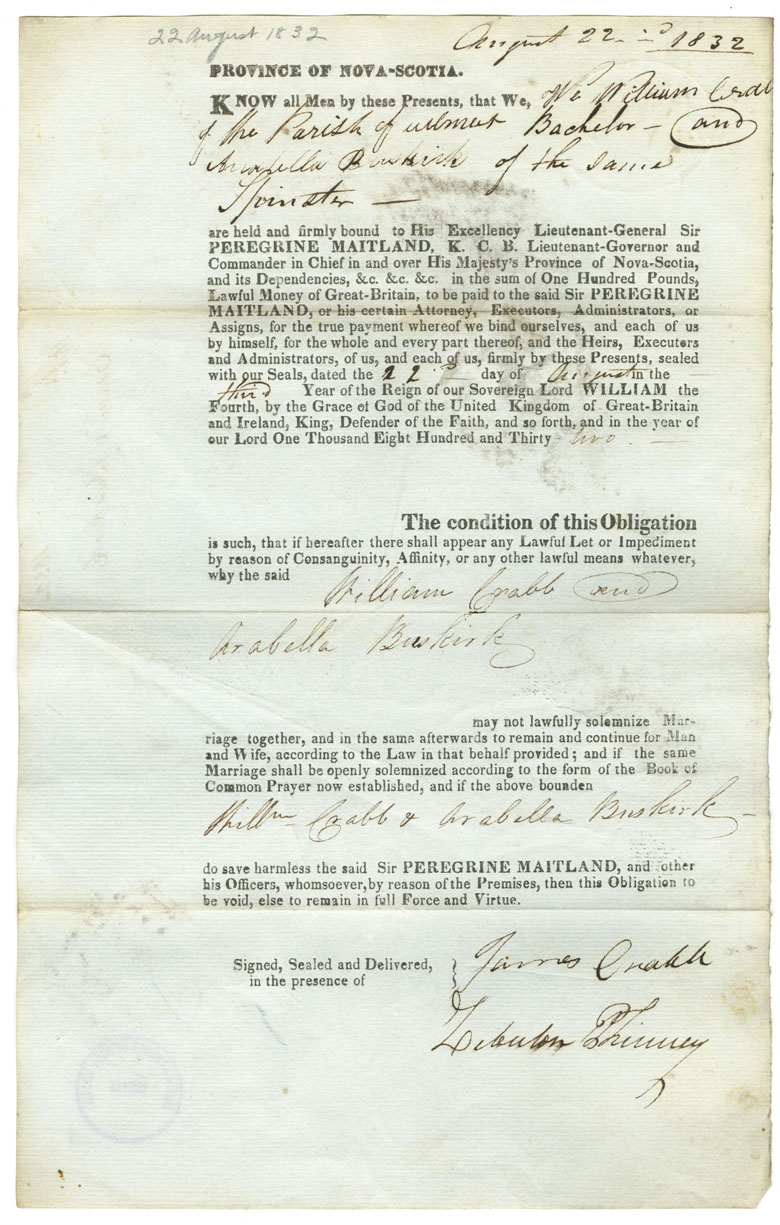 22 August 1832
August 22nd 1832
PROVINCE OF NOVA-SCOTIA.
KNOW all Men by these Presents, that We, We William Crabb
of the Parish of Wilmot Bachelor — and
Arabella Buskirk of the same
Spinster —
are held and firmly bound to His Excellency Lieutenant-General Sir
PEREGRINE MAITLAND, K. C. B. Lieutenant-Governor and
Commander in Chief in and over His Majesty's Province of Nova-Scotia,
and its Dependencies, &c. &c. &c. in the sum of One Hundred Pounds,
Lawful Money of Great-Britain, to be paid to the said Sir PEREGRINE
MAITLAND, or his certain Attorney, Executors, Administrators, or
Assigns, for the true payment whereof we bind ourselves, and each of us
by himself, for the whole and every part thereof, and the Heirs, Executors
and Administrators, of us, and each of us, firmly by these Presents, sealed
with our Seals, dated the 22nd day of August in the
third Year of the Reign of our Sovereign Lord WILLIAM the
Fourth, by the Grace of God of the United Kingdom of Great-Britain
and Ireland, King, Defender of the Faith, and so forth, and in the year of
our Lord One Thousand Eight Hundred and Thirty two —
The condition of this Obligation
is such, that if hereafter there shall appear any Lawful Let or Impediment
by reason of Consanguinity, Affinity, or any other lawful means whatever,
why the said
William Crabb and
Arabella Buskirk
may not lawfully solemnize Mar-
riage together, and in the same afterwards to remain and continue for Man
and Wife, according to the Law in that behalf provided; and if the same
Marriage shall be openly solemnized according to the form of the Book of
Common Prayer now established, and if the above bounden
Willm Crabb & Arabella Buskirk —
do save harmless the said Sir PEREGRINE MAITLAND, and other
his Officers, whomsoever, by reason of the Premises, then this Obligation to
be void, else to remain in full Force and Virtue.
Signed, Sealed and Delivered,
in the presence of
James Crabb
Zebulon Phinney